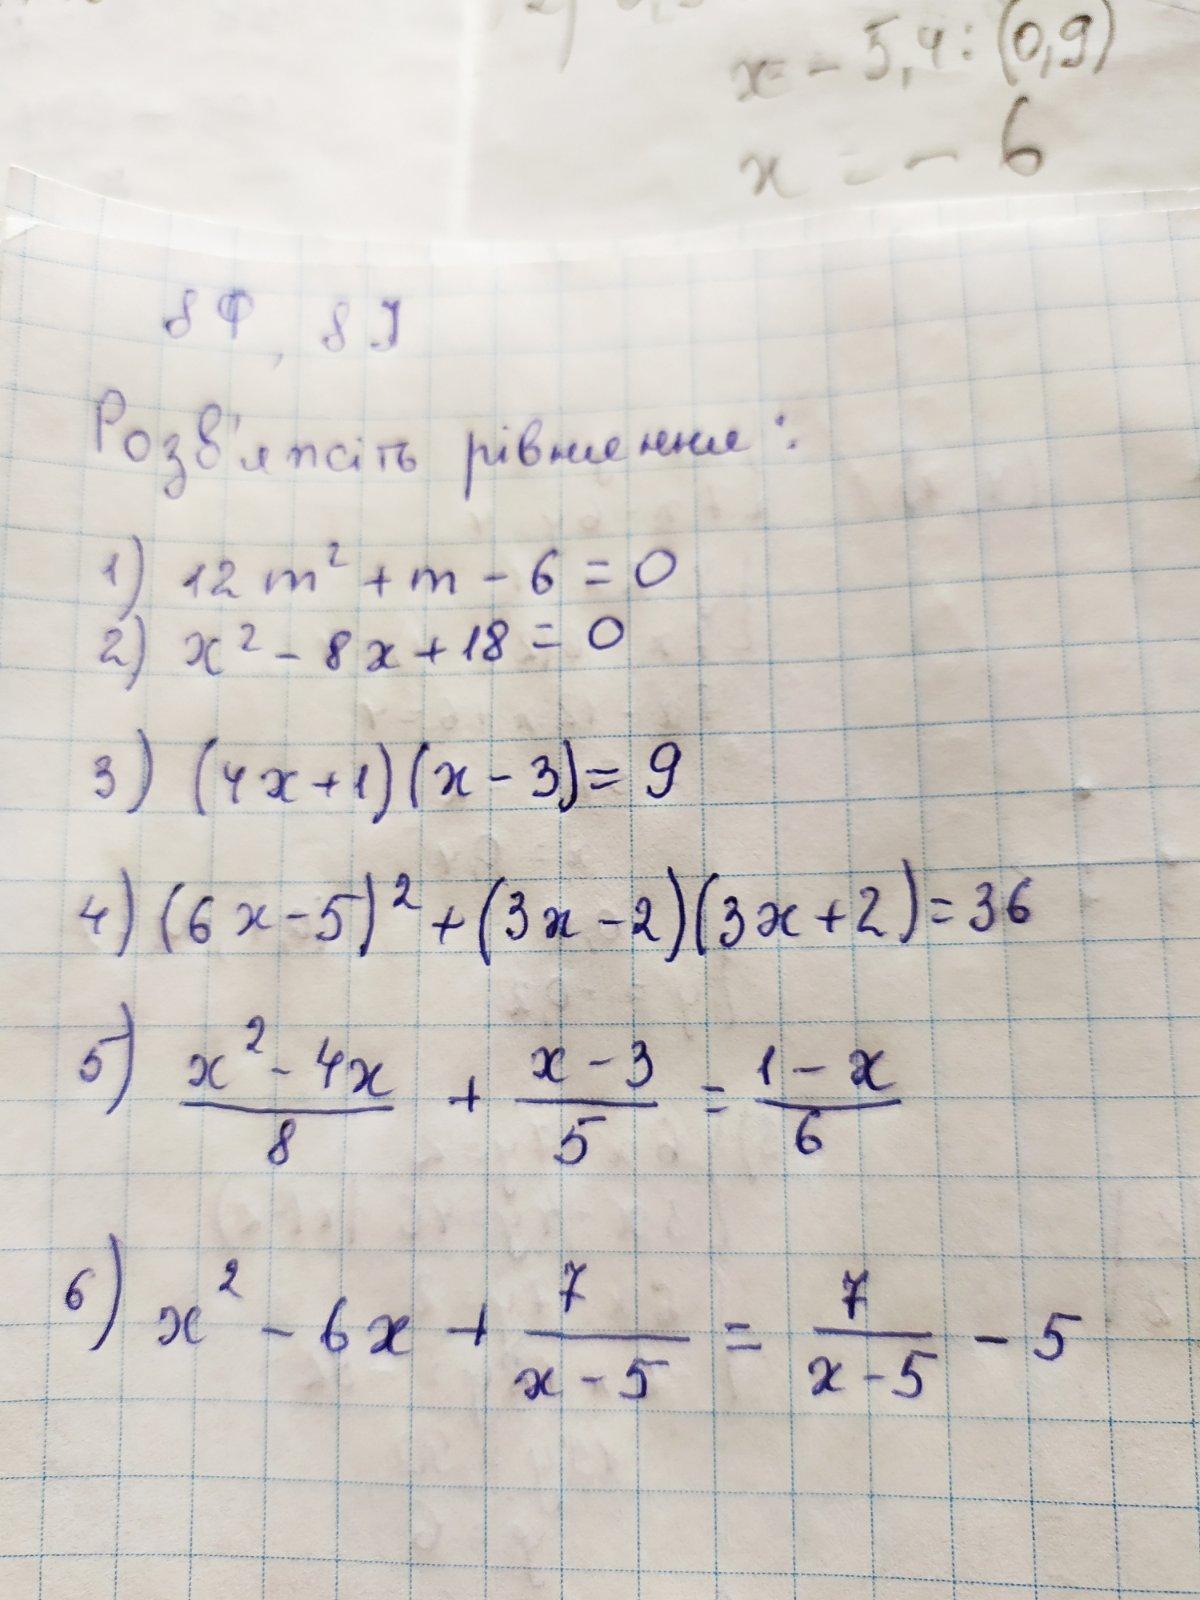 x = - 5,4 : (0,9)
x = - 6
8 Ф, 8 І
Розв'яжіть рівняння:
1) 12m² + m - 6 = 0
2) x² - 8x + 18 = 0
3) (4x + 1)(x - 3) = 9
4) (6x - 5)² + (3x - 2)(3x + 2) = 36
5) (x² - 4x)/8 + (x - 3)/5 = (1 - x)/6
6) x² - 6x + 7/(x - 5) = 7/(x - 5) - 5